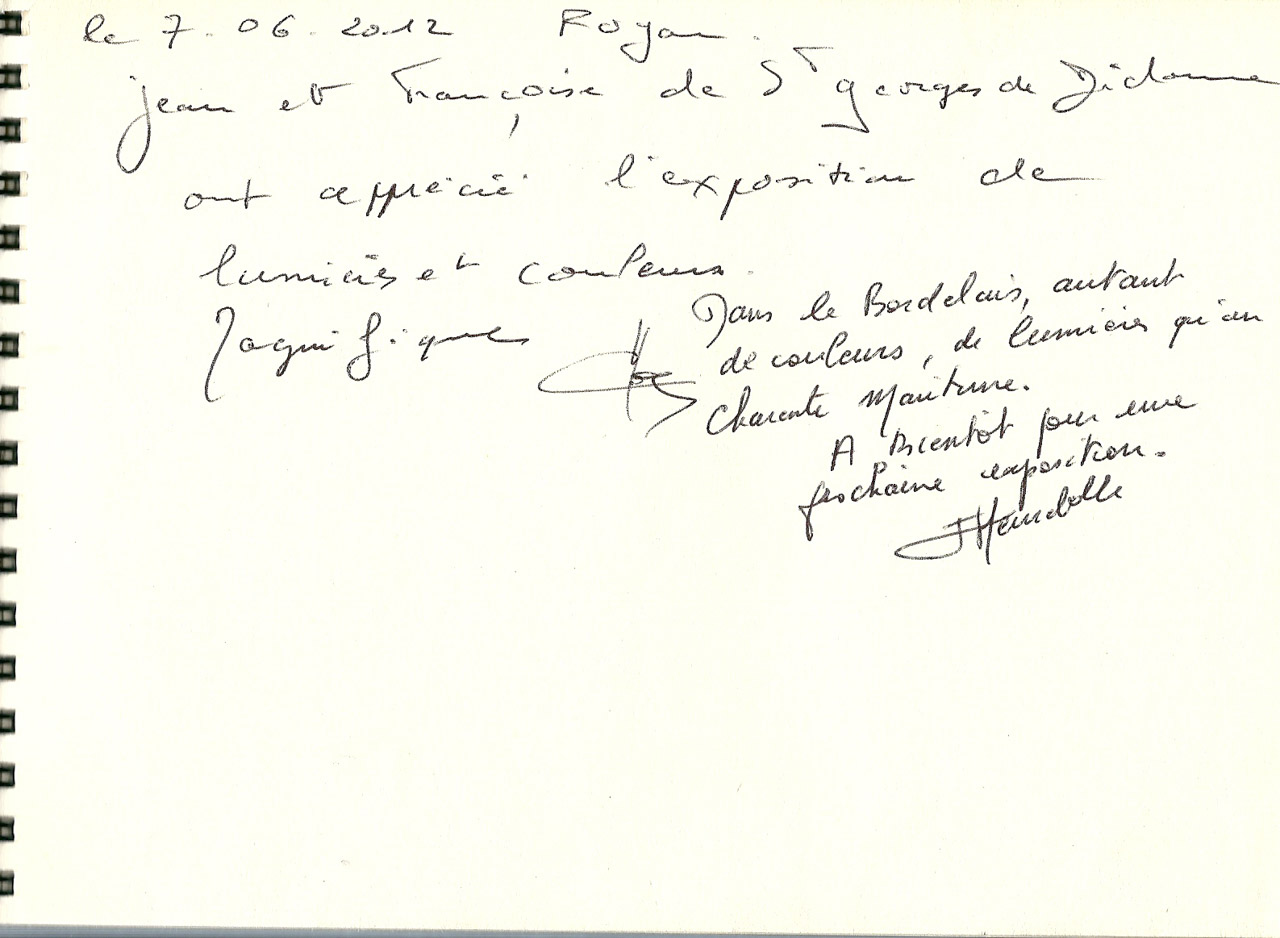 le 7.06.2012 Royan.
Jean et Françoise de St Georges de Didonne
ont apprécié l'exposition de
lumières et couleurs.
Magnifiques
Dans le Bordelais, autant
de couleurs, de lumières qu'en
Charente Maritime.
A Bientôt pour une
prochaine exposition.